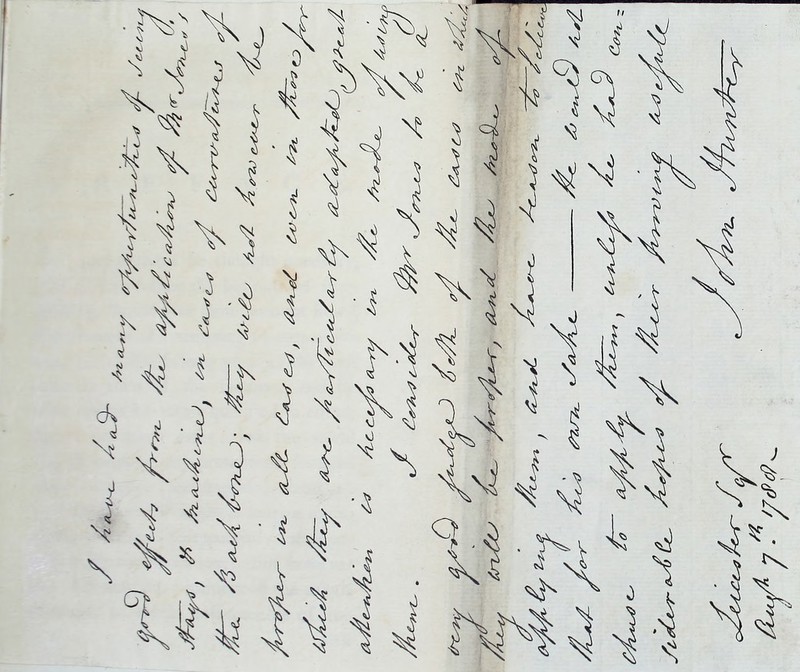 I have had many opportunities of seeing
good effects from the application of Mr. Jones's
Stays, & machine, in cases of curvatures of
the Back bone; they will not however be
proper in all cases, and even in those for
which they are particularly adapted, great
attention is necessary in the mode of using
them. I consider Mr Jones to be a
very good judge both of the cases in which
they will be proper, and the mode of
applying them, and have reason to believe
that for his own sake —— He would not
chuse to apply them, unless he had con=
siderable hopes of their proving usefull
John Hunter
Leicester Sqr
Augst 7.th 1788~